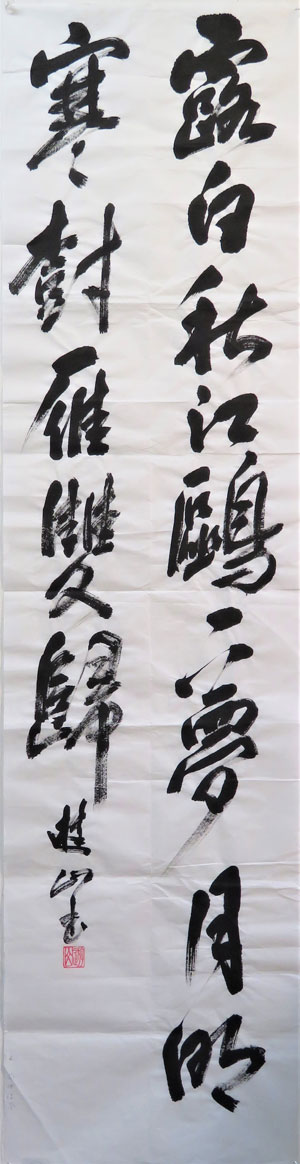 露白秋江鷗一夢月明
寒樹雁雙歸
桂山書